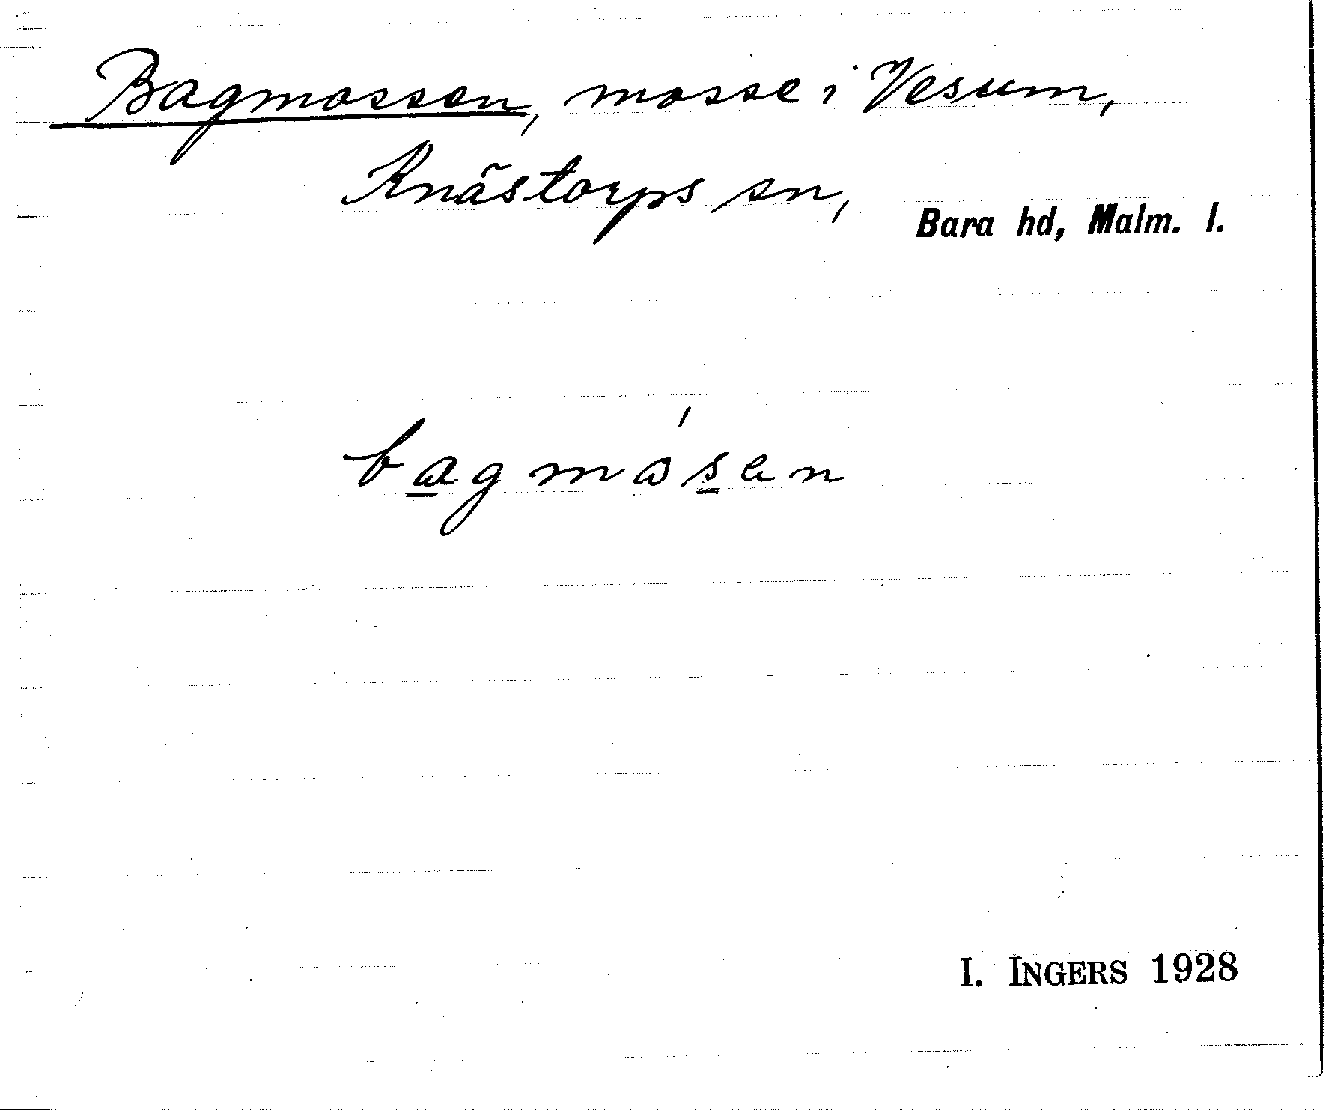 Bagmossen, mosse i Vesum,
Knästorps sn, Bara hd, Malm. l.
bagmósen
I. INGERS 1928